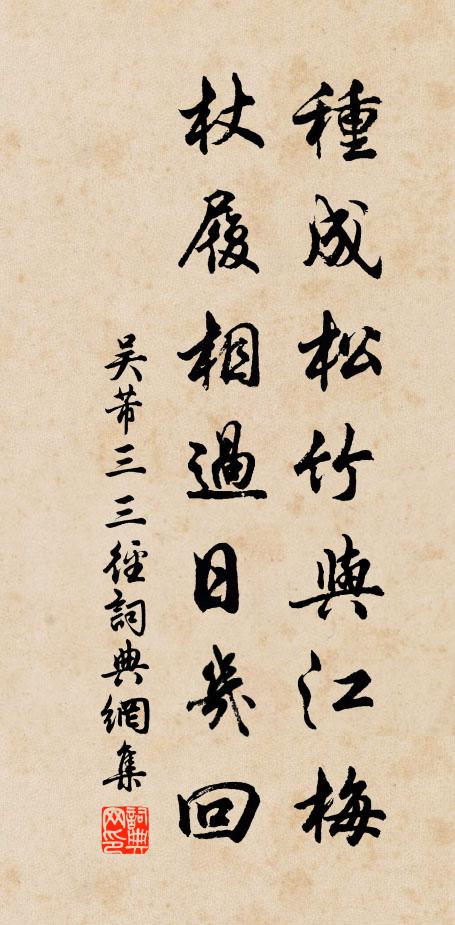 種成松竹與江梅
杖履相過日幾回
吳芾三三徑詞典網集
詞典網印